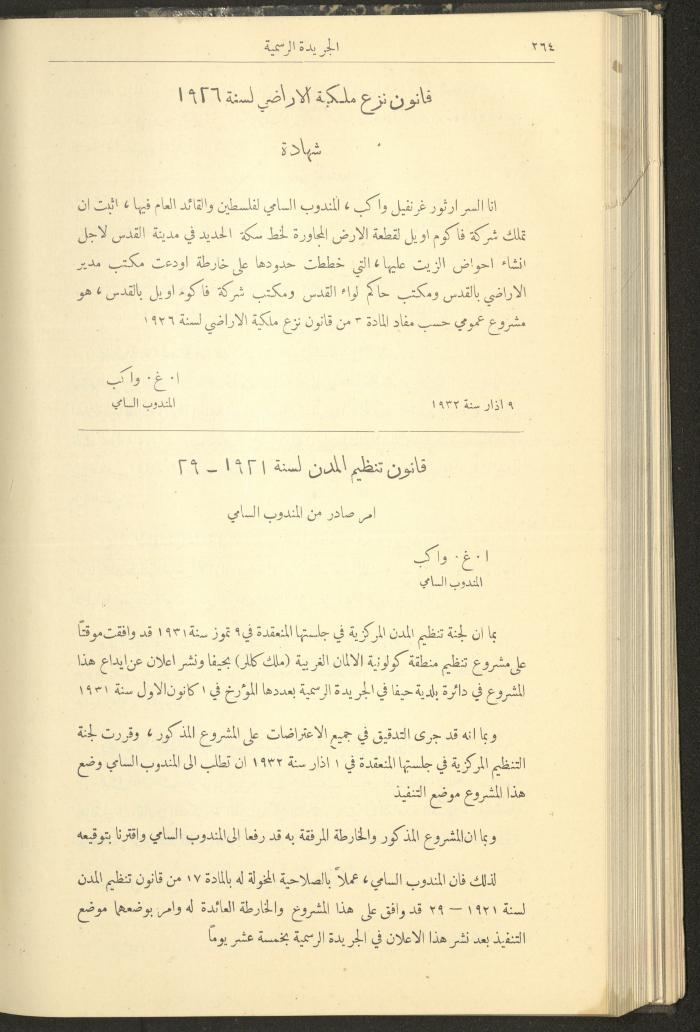 ٢٦٤
الجريدة الرسمية
قانون نزع ملكية الاراضي لسنة ١٩٢٦
شهادة
انا السر ارثور غرنفيل واكب، المندوب السامي لفلسطين والقائد العام فيها، اثبت ان
تملك شركة فاكوم اويل لقطعة الارض المجاورة لخط سكة الحديد في مدينة القدس لاجل
انشاء احواض الزيت عليها، التي خططت حدودها على خارطة اودعت مكتب مدير
الاراضي بالقدس ومكتب حاكم لواء القدس ومكتب شركة فاكوم اويل بالقدس، هو
مشروع عمومي حسب مفاد المادة ٣ من قانون نزع ملكية الاراضي لسنة ١٩٢٦
ا٠ غ٠ واكب
٩ اذار سنة ١٩٣٢
المندوب السامي
قانون تنظيم المدن لسنة ١٩٢١ – ٢٩
امر صادر من المندوب السامي
ا٠ غ٠ واكب
المندوب السامي
بما ان لجنة تنظيم المدن المركزية في جلستها المنعقدة في ٩ تموز سنة ١٩٣١ قد وافقت موقتاً
على مشروع تنظيم منطقة كولونية الالمان الغربية (ملك كللر) بحيفا ونشر اعلان عن ايداع هذا
المشروع في دائرة بلدية حيفا في الجريدة الرسمية بعددها المؤرخ في ١ كانون الاول سنة ١٩٣١
وبما انه قد جرى التدقيق في جميع الاعتراضات على المشروع المذكور، وقررت لجنة
التنظيم المركزية في جلستها المنعقدة في ١ اذار سنة ١٩٣٢ ان تطلب الى المندوب السامي وضع
هذا المشروع موضع التنفيذ
وبما ان المشروع المذكور والخارطة المرفقة به قد رفعا الى المندوب السامي واقترنا بتوقيعه
لذلك فان المندوب السامي، عملاً بالصلاحية المخولة له بالمادة ١٧ من قانون تنظيم المدن
لسنة ١٩٢١ – ٢٩ قد وافق على هذا المشروع والخارطة العائدة له وامر بوضعهما موضع
التنفيذ بعد نشر هذا الاعلان في الجريدة الرسمية بخمسة عشر يوماً